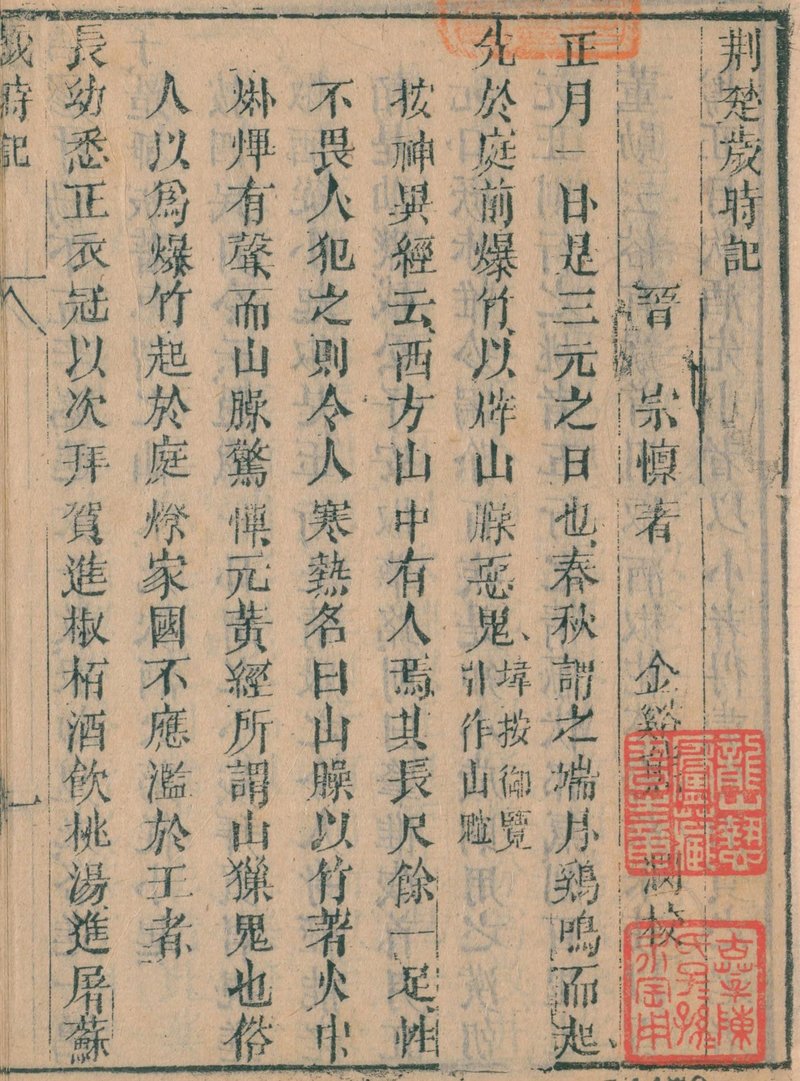 荆楚歲時記
晋 宗懍著 金谿 校
正月一日是三元之日也春秋謂之端月雞鳴而起
先於庭前爆竹以辟山臊惡鬼、埠按御覽引作山魈
按神異經云、西方山中有人焉其長尺餘一足性
不畏人犯之則令人寒熱名曰山臊以竹著火中
烞熚有聲、而山臊驚憚、元黃經所謂山𤢖鬼也俗
人以爲爆竹起於庭燎家國不應濫於王者
長幼悉正衣冠以次拜賀進椒栢酒飲桃湯進屠蘇
歲時記 八 一